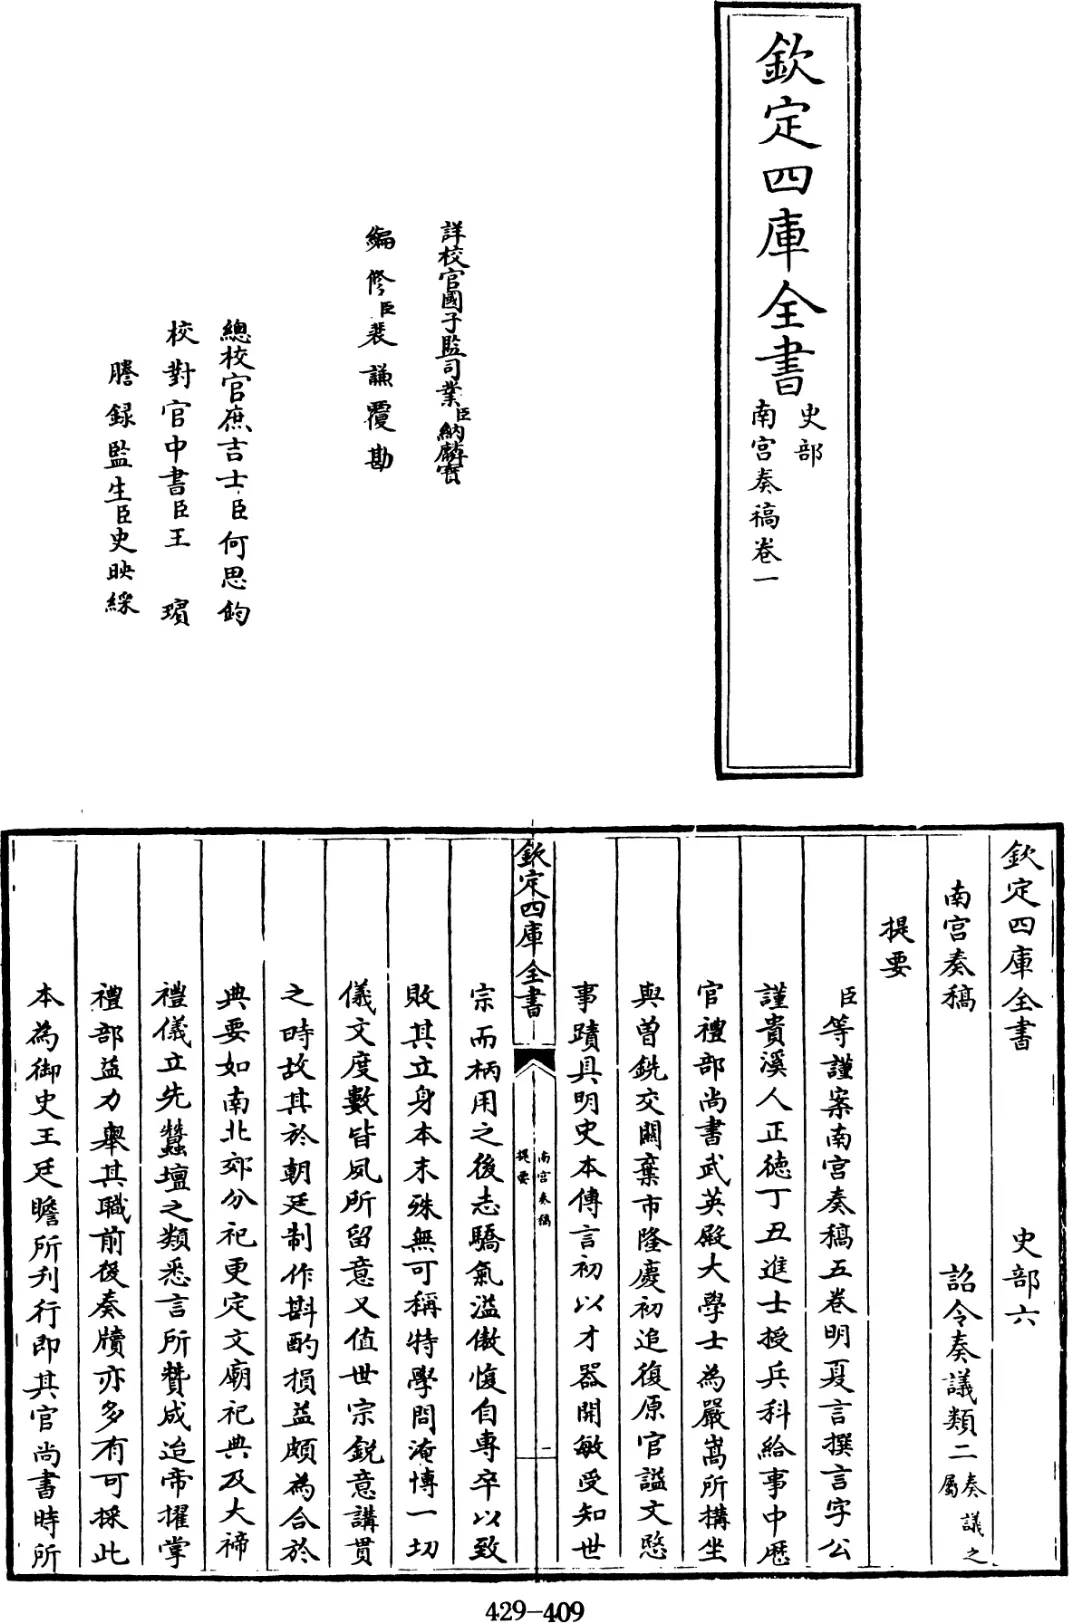 欽定四庫全書
史部
南宫奏稿卷一
詳校官國子監司業臣納麟寶
編修臣裴謙覆勘
總校官庶吉士臣何思鈞
校對官中書臣王瑸
謄録監生臣史映綵
欽定四庫全書 史部六
南宫奏稿 詔令奏議類二奏議之屬
提要
臣等謹案南宫奏稿五卷明夏言撰言字公
謹貴溪人正徳丁丑進士授兵科給事中歴
官禮部尚書武英殿大學士為嚴嵩所搆坐
與曽銑交闗棄市隆慶初追復原官謚文愍
事蹟具明史本傳言初以才器開敏受知世
欽定四庫全書
南宫奏稿
提要
二
宗而柄用之後志驕氣溢傲愎自專卒以致
敗其立身本末殊無可稱特學問淹博一切
儀文度數皆夙所留意又值世宗鋭意講貫
之時故其於朝廷制作斟酌損益頗為合於
典要如南北郊分祀更定文廟祀典及大禘
禮儀立先蠶壇之類悉言所贊成迨帝擢掌
禮部益力舉其職前後奏牘亦多有可採此
本為御史王廷瞻所刋行即其官尚書時所
429-409